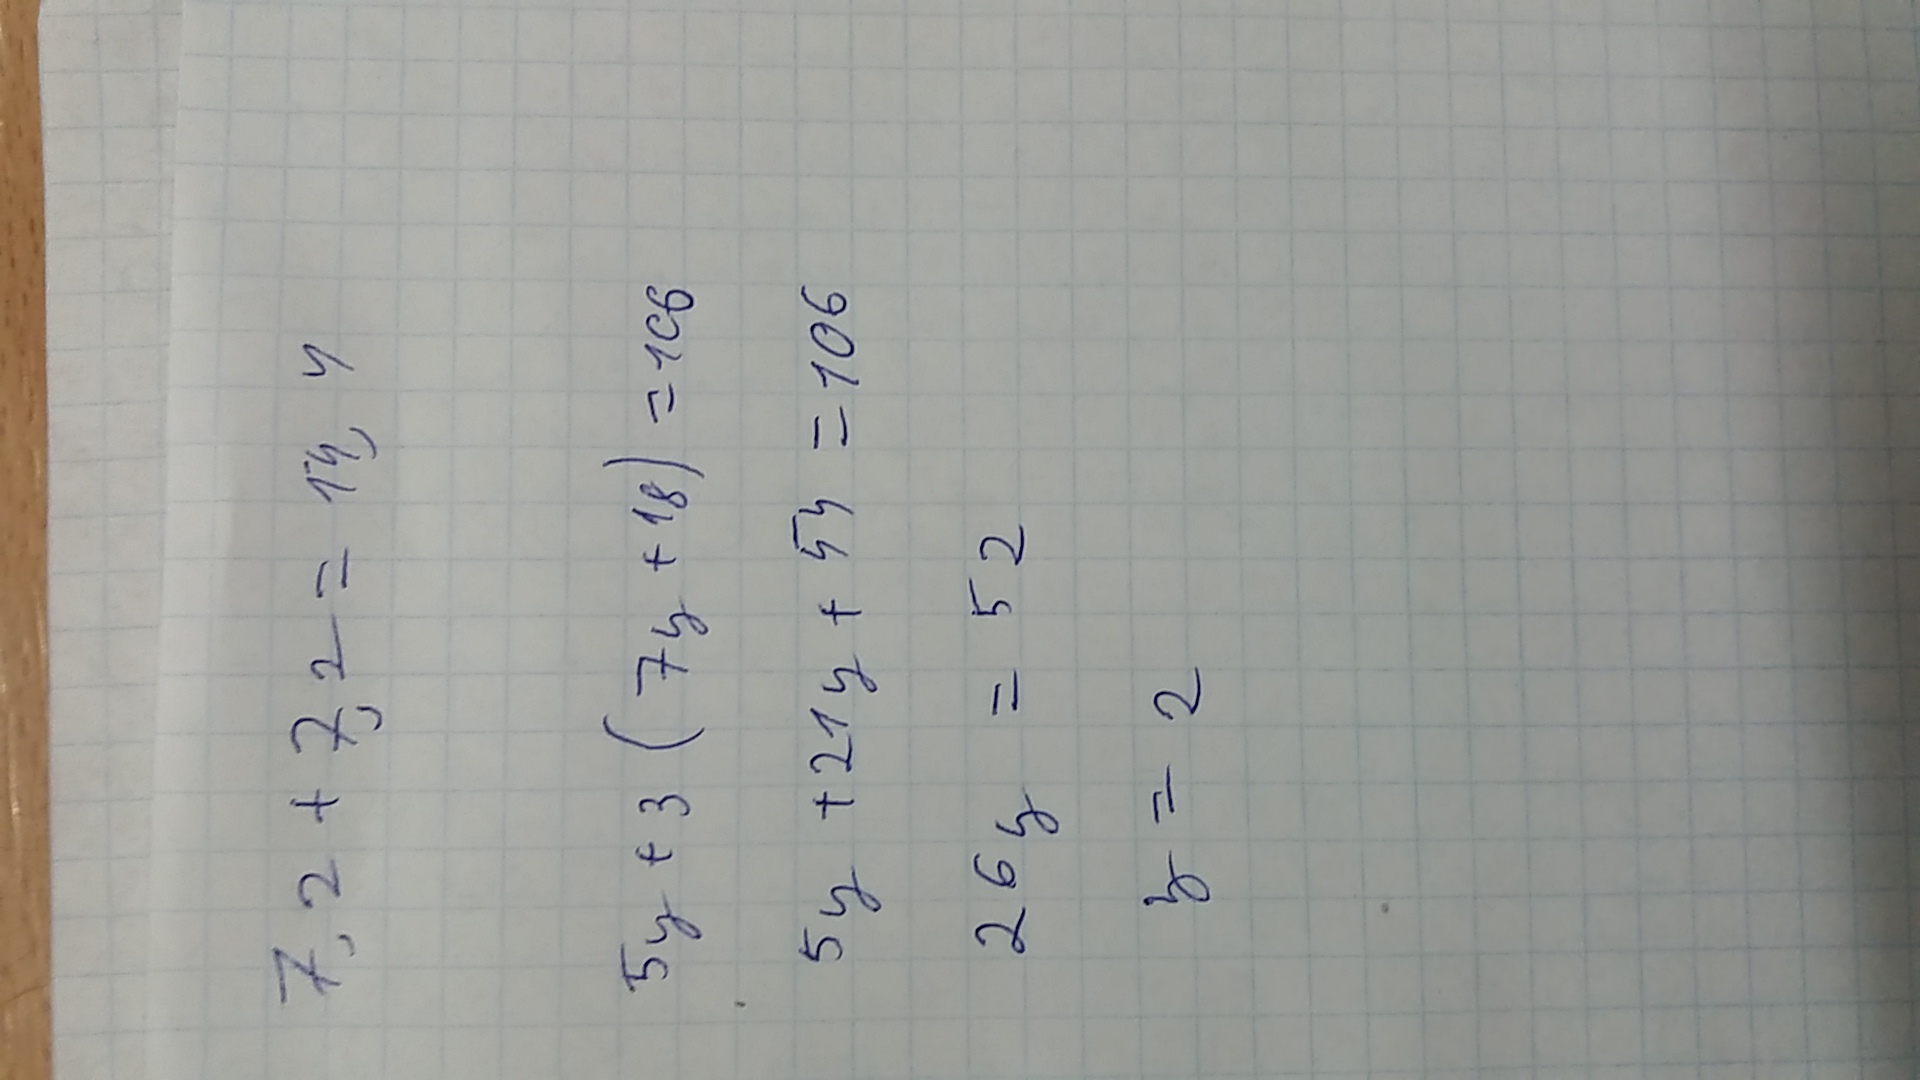 7,2 + 7,2 = 14,4
5y + 3 (7y + 18) = 106
5y + 21y + 54 = 106
26y = 52
y = 2